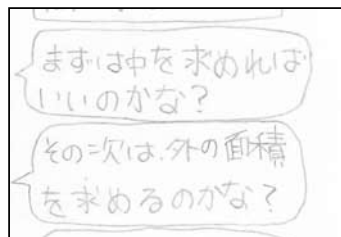 まずは中を求めれば
いいのかな?
その次は、外の面積
を求めるのかな?